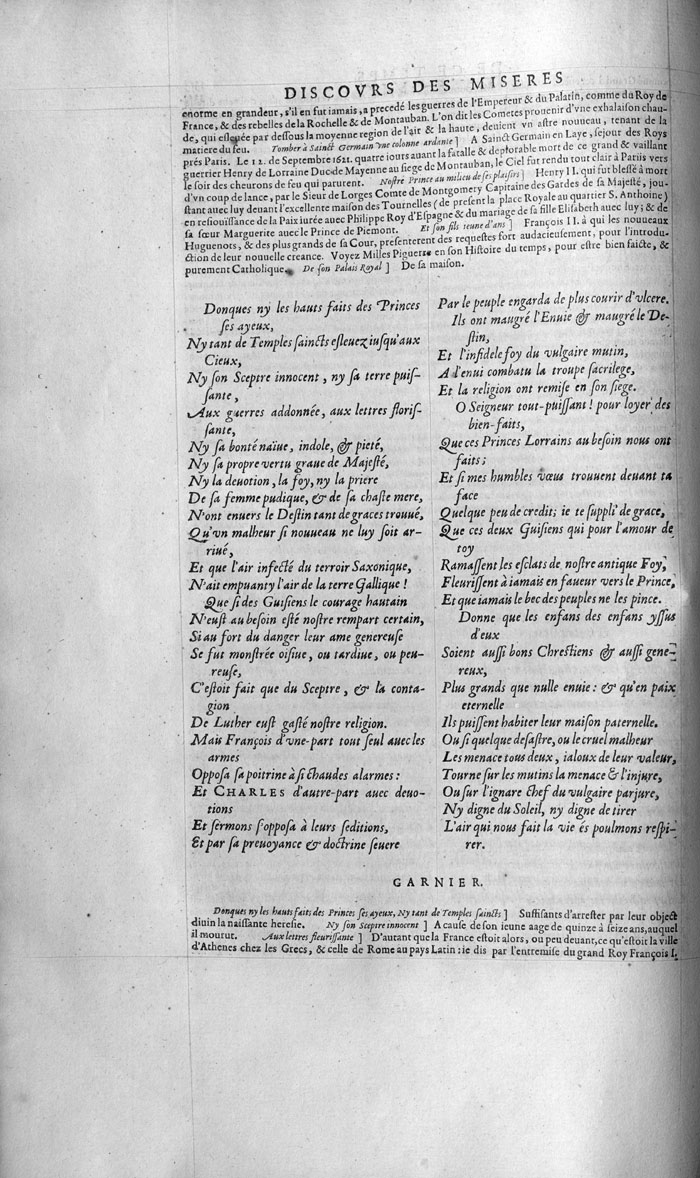 DISCOVRS DES MISERES
enorme en grandeur, s'il en fut iamais, a precedé les guerres de l'Empereur & du Palatin, comme du Roy de
France, & des rebelles de la Rochelle & de Montauban. L'on dit les Cometes prouenir d'vne exhalaison chau-
de, qui esleuée par dessous la moyenne region de l'air & la haute, deuient vn astre nouueau, tenant de la
matiere du feu. Tomber à Sainct Germain vne colonne ardante] A Sainct Germain en Laye, sejour des Roys
prés Paris. Le 12. de Septembre 1621. quatre iours auant la fatalle & deplorable mort de ce grand & vaillant
guerrier Henry de Lorraine Duc de Mayenne au siege de Montauban, le Ciel fut rendu tout clair à Pariis vers
le soir des cheurons de feu qui parurent. Nostre Prince au milieu de ses plaisirs] Henry II. qui fut blessé à mort
d'vn coup de lance, par le Sieur de Lorges Comte de Montgomery Capitaine des Gardes de sa Majesté, jou-
stant auec luy deuant l'excellente maison des Tournelles (de present la place Royale au quartier S. Anthoine)
en resiouissance de la Paix iurée auec Philippe Roy d'Espagne & du mariage de sa fille Elisabeth auec luy; & de
sa sœur Marguerite auec le Prince de Piemont. Et son fils ieune d'ans] François II. à qui les nouueaux
Huguenots, & des plus grands de sa Cour, presenterent des requestes fort audacieusement, pour l'introdu-
ction de leur nouuelle creance. Voyez Milles Piguerre en son Histoire du temps, pour estre bien faicte, &
purement Catholique. De son Palais Royal] De sa maison.
Donques ny les hauts faits des Princes
ses ayeux,
Ny tant de Temples saincts esleuez iusqu'aux
Cieux,
Ny son Sceptre innocent, ny sa terre puis-
sante,
Aux guerres addonnée, aux lettres floris-
sante,
Ny sa bonté naïue, indole, & pieté,
Ny sa propre vertu graue de Majesté,
Ny la deuotion, la foy, ny la priere
De sa femme pudique, & de sa chaste mere,
N'ont enuers le Destin tant de graces trouué,
Qu'vn malheur si nouueau ne luy soit ar-
riué,
Et que l'air infecté du terroir Saxonique,
N'ait empuanty l'air de la terre Gallique!
Que si des Guisiens le courage hautain
N'eust au besoin esté nostre rempart certain,
Si au fort du danger leur ame genereuse
Se fut monstrée oisiue, ou tardiue, ou peu-
reuse,
C'estoit fait que du Sceptre, & la conta-
gion
De Luther eust gasté nostre religion.
Mais François d'vne-part tout seul auec les
armes
Opposa sa poitrine à si chaudes alarmes:
Et CHARLES d'autre-part auec deuo-
tions
Et sermons s'opposa à leurs seditions,
Et par sa preuoyance & doctrine seuere
Par le peuple engarda de plus courir d'vlcere.
Ils ont maugré l'Enuie & maugré le De-
stin,
Et l'infidele foy du vulgaire mutin,
A l'enui combatu la troupe sacrilege,
Et la religion ont remise en son siege.
O Seigneur tout-puissant! pour loyer des
bien-faits,
Que ces Princes Lorrains au besoin nous ont
faits;
Et si mes humbles vœus trouuent deuant ta
face
Quelque peu de credit; ie te suppli' de grace,
Que ces deux Guisiens qui pour l'amour de
toy
Ramassent les esclats de nostre antique Foy,
Fleurissent à iamais en faueur vers le Prince,
Et que iamais le bec des peuples ne les pince.
Donne que les enfans des enfans yssus
d'eux
Soient aussi bons Chrestiens & aussi gene-
reux,
Plus grands que nulle enuie: & qu'en paix
eternelle
Ils puissent habiter leur maison paternelle.
Ou si quelque desastre, ou le cruel malheur
Les menace tous deux, ialoux de leur valeur,
Tourne sur les mutins la menace & l'injure,
Ou sur l'ignare chef du vulgaire parjure,
Ny digne du Soleil, ny digne de tirer
L'air qui nous fait la vie és poulmons respi-
rer.
GARNIER.
Donques ny les hauts faits des Princes ses ayeux, Ny tant de Temples saincts] Suffisants d'arrester par leur object
diuin la naissante heresie. Ny son Sceptre innocent] A cause de son ieune aage de quinze à seize ans, auquel
il mourut. Aux lettres fleurissante] D'autant que la France estoit alors, ou peu deuant, ce qu'estoit la ville
d'Athenes chez les Grecs, & celle de Rome au pays Latin: ie dis par l'entremise du grand Roy François I.